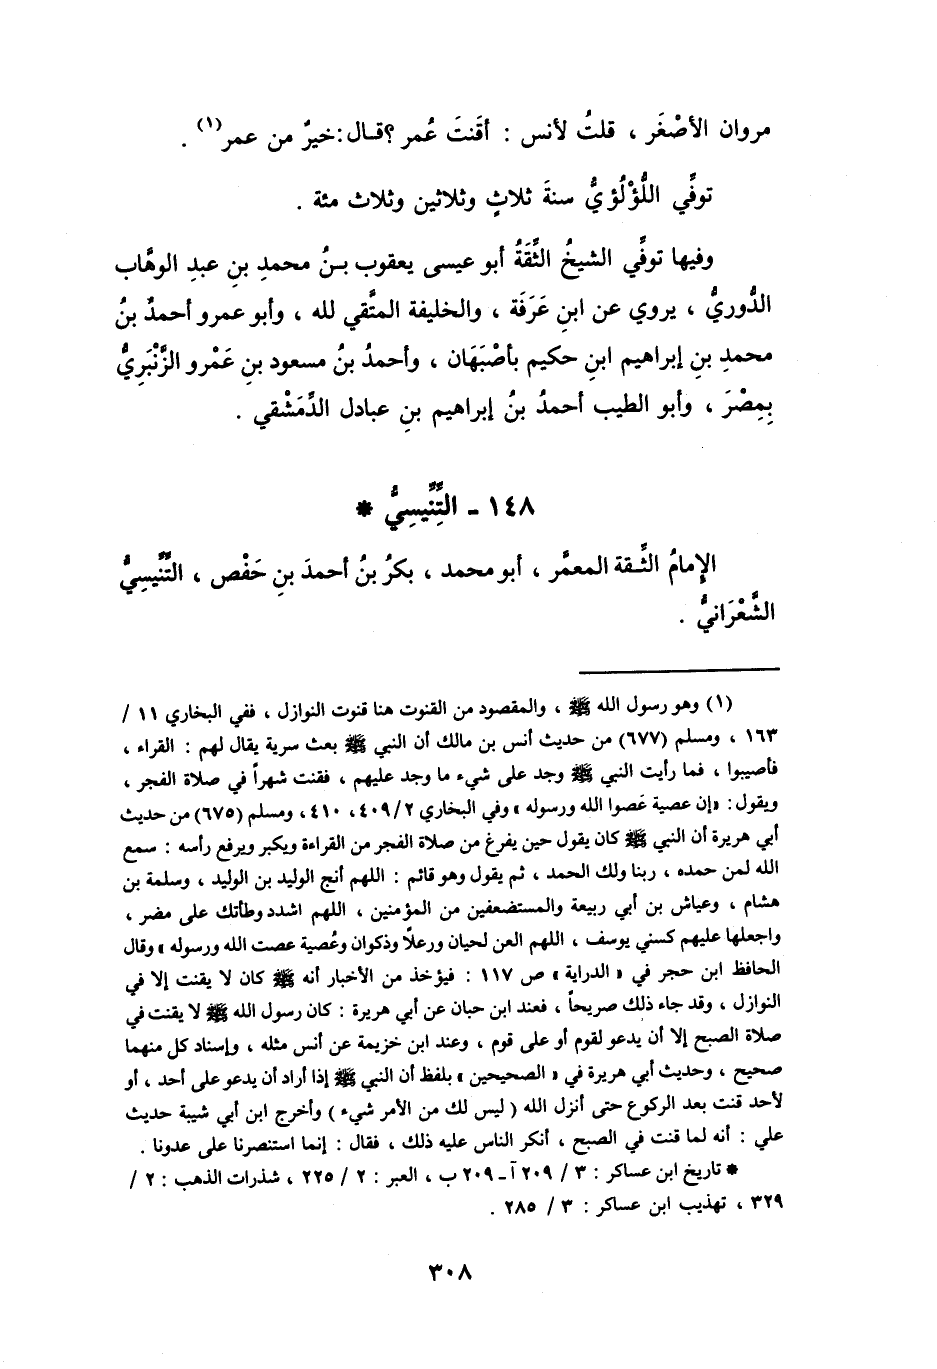 مروان الأصْغَر ، قلتُ لأنس : أقَنتَ عُمر ؟ قـال : خيرٌ من عمر(١) .
توفِّي اللُّؤْلُؤيُّ سنةَ ثلاثٍ وثلاثين وثلاث مئة .
وفيها توفِّي الشيخُ الثِّقَةُ أبو عيسى يعقوب بـنُ محمدِ بنِ عبدِ الوهَّاب
الدُّوريُّ ، يروي عن ابنِ عَرَفَة ، والخليفة المتَّقي لله ، وأبو عمرو أحمدُ بنُ
محمدِ بنِ إبراهيم ابنِ حكيم بأصْبَهَان ، وأحمدُ بنُ مسعود بنِ عَمْرو الزَّنْبَرِيُّ
بِمِصْرَ ، وأبو الطيب أحمدُ بنُ إبراهيم بنِ عبادل الدِّمَشْقي .
١٤٨ - التِّنِّيسِيُّ *
الإمامُ الثِّـقة المعمَّر ، أبو محمد ، بكرُ بنُ أحمدَ بنِ حَفْص ، التِّنِّيسِيُّ
الشَّعْرَانيُّ .
(١) وهو رسول الله ﷺ ، والمقصود من القنوت هنا قنوت النوازل ، ففي البخاري ١١ /
١٦٣ ، ومسلم (٦٧٧) من حديث أنس بن مالك أن النبي ﷺ بعث سرية يقال لهم : القراء ،
فأصيبوا ، فما رأيت النبي ﷺ وجد على شيء ما وجد عليهم ، فقنت شهراً في صلاة الفجر ،
ويقول : «إن عصية عَصوا الله ورسوله » وفي البخاري ٤٠٩/٢ ، ٤١٠ ، ومسلم (٦٧٥) من حديث
أبي هريرة أن النبي ﷺ كان يقول حين يفرغ من صلاة الفجر من القراءة ويكبر ويرفع رأسه : سمع
الله لمن حمده ، ربنا ولك الحمد ، ثم يقول وهو قائم : اللهم أنج الوليد بن الوليد ، وسلمة بن
هشام ، وعياش بن أبي ربيعة والمستضعفين من المؤمنين ، اللهم اشدد وطأتك على مضر ،
واجعلها عليهم كسني يوسف ، اللهم العن لحيان ورعلاً وذكوان وعُصية عصت الله ورسوله » وقال
الحافظ ابن حجر في « الدراية » ص ١١٧ : فيؤخذ من الأخبار أنه ﷺ كان لا يقنت إلا في
النوازل ، وقد جاء ذلك صريحاً ، فعند ابن حبان عن أبي هريرة : كان رسول الله ﷺ لا يقنت في
صلاة الصبح إلا أن يدعو لقوم أو على قوم ، وعند ابن خزيمة عن أنس مثله ، وإسناد كل منهما
صحيح ، وحديث أبي هريرة في « الصحيحين » بلفظ أن النبي ﷺ إذا أراد أن يدعو على أحد ، أو
لأحد قنت بعد الركوع حتى أنزل الله ( ليس لك من الأمر شيء ) وأخرج ابن أبي شيبة حديث
علي : أنه لما قنت في الصبح ، أنكر الناس عليه ذلك ، فقال : إنما استنصرنا على عدونا .
* تاريخ ابن عساكر : ٣ / ٢٠٩ آ - ٢٠٩ ب ، العبر : ٢ / ٢٢٥ ، شذرات الذهب : ٢ /
٣٢٩ ، تهذيب ابن عساكر : ٣ / ٢٨٥ .
٣٠٨